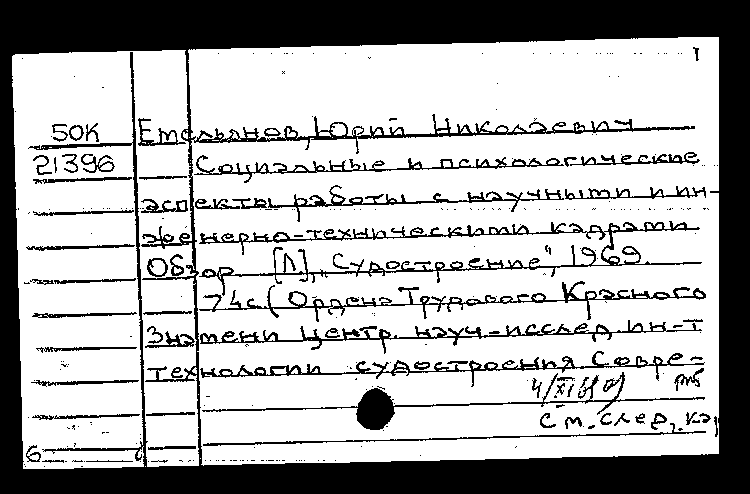 1
50К Емельянов, Юрий Николаевич
21396 Социальные и психологические
аспекты работы с научными и ин-
женерно-техническими кадрами
Обзор. [Л], "Судостроение", 1969.
74с. (Ордена Трудового Красного
Знамени Центр. науч-исслед. ин-т
технологии судостроения Совре-
4/XI
См. след. ка,
6